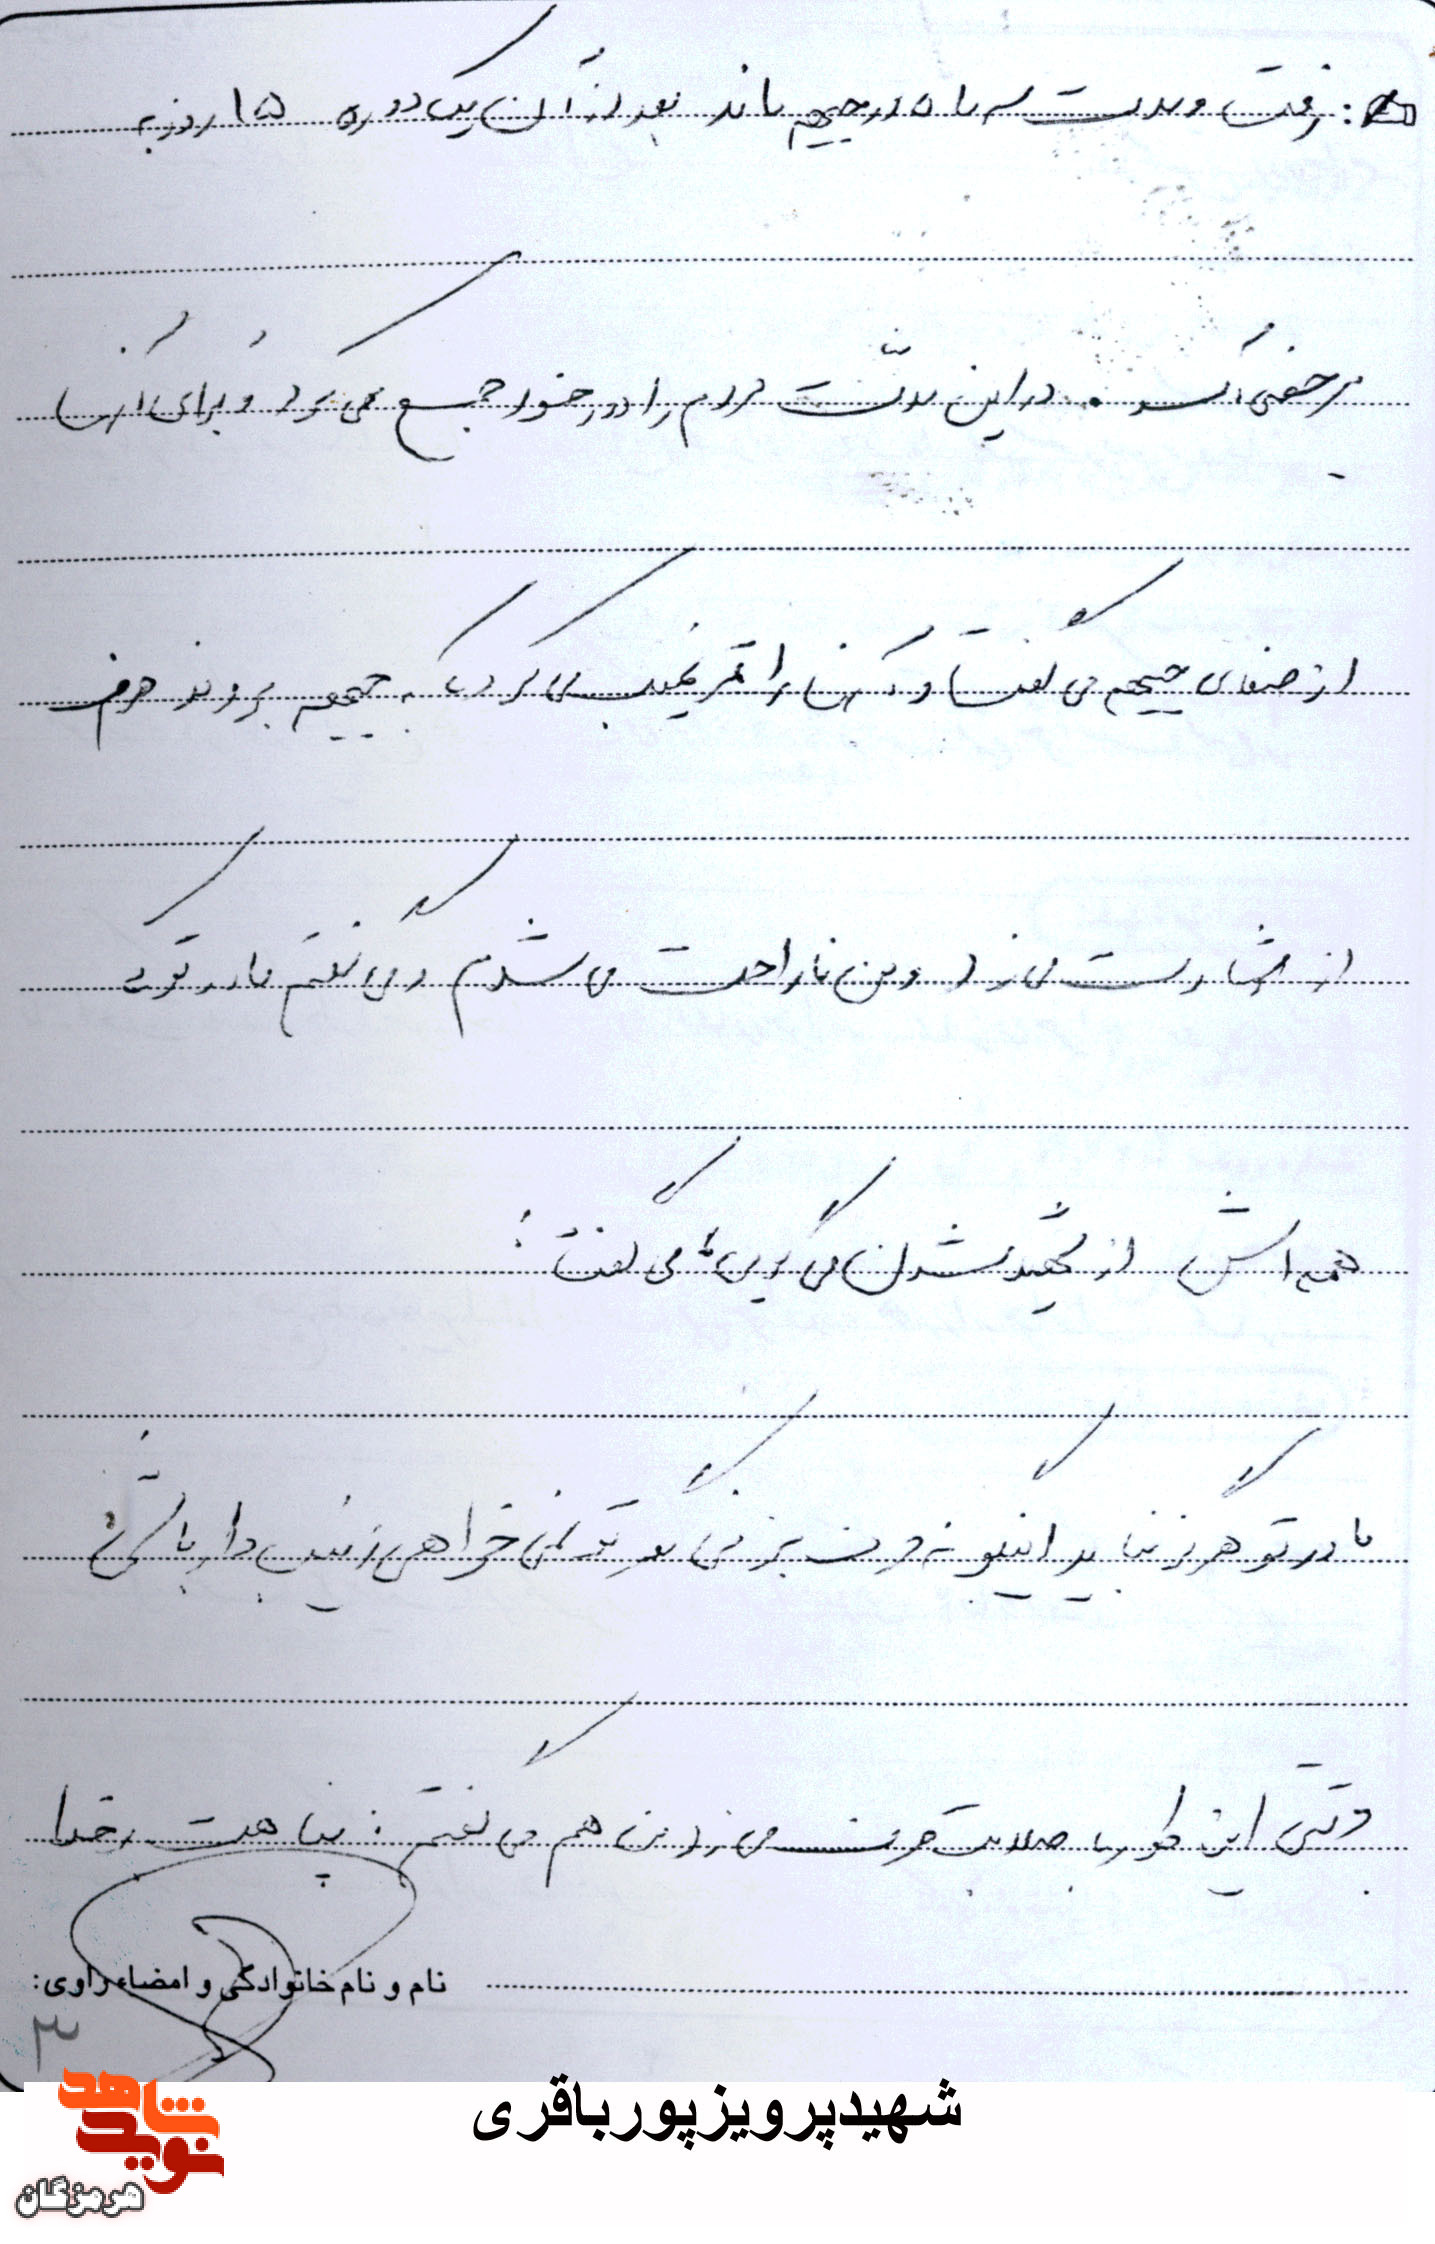 رفت و مدت سه ماه در جبهه ماند بعد از آن یک دوره ۱۵ روز به
مرخصی آمد. در این مدت مردم را دور خود جمع می کرد و برای آنها
از صفای جبهه می گفت و آنها را ترغیب می کرد که به جبهه بروند حرف
از شهادت می زد و من ناراحت می شدم و می گفتم مادر تو که
همه اش از شهید شدن می گویی، می گفت:
مادر تو هرگز نباید اینگونه حرف بزنی مگر تو نمی خواهی زینب وار باشی
وقتی این طور با صلابت حرف می زد من هم می گفتم: پناهت بر خدا
نام و نام خانوادگی و امضاء راوی:
۳
شهید پرویز پور باقری
نوید شاهد
هرمزگان